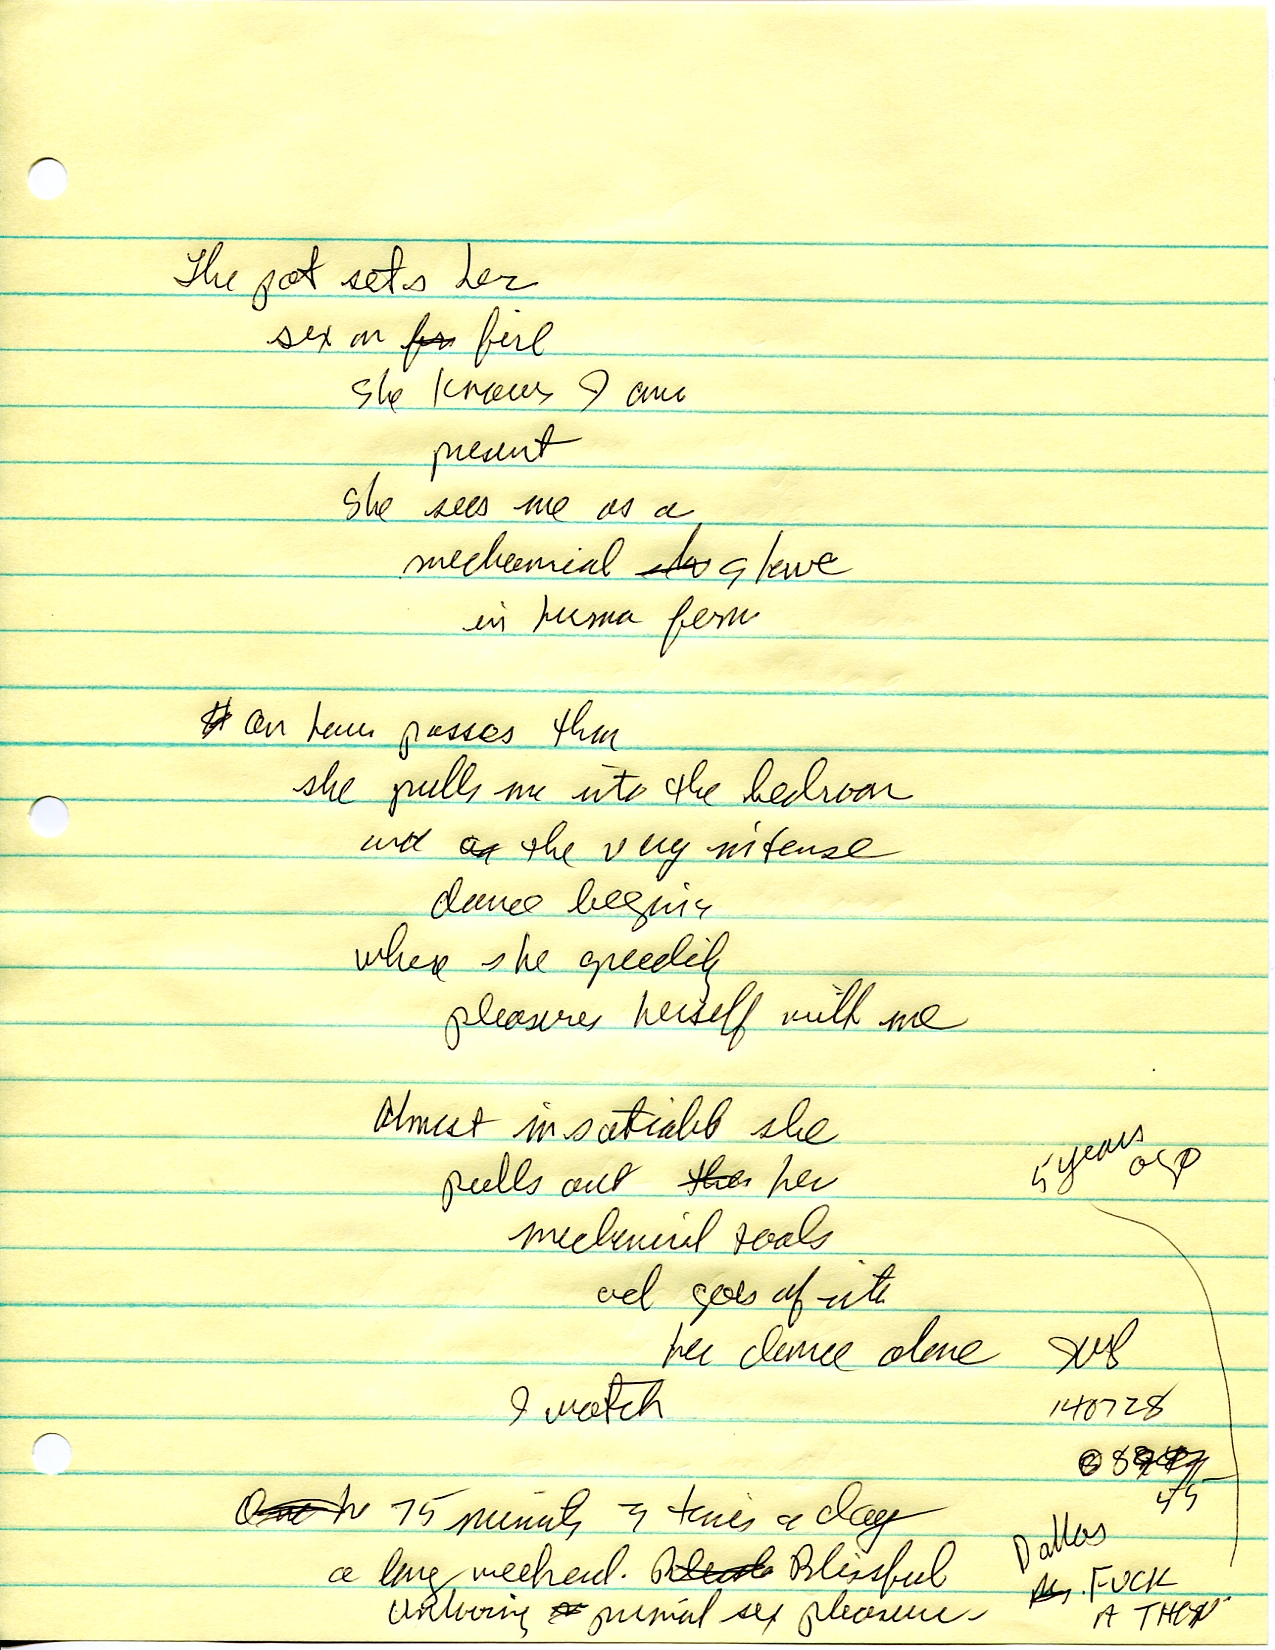 The pot sets her
sex on fire
she knows I am
present
She sees me as a
mechanical slave
in human form
an hour passes then
she pulls me into the bedroom
and the very intense
dance begins
where she greedily
pleasures herself with me
almost insatiable she
pulls out her
mechanical tools
and goes off into
her dance alone
I watch
75 minutes 3 times a day
a long weekend. Blissful
unloving primal sex pleasure
5 years
ago
140728
45
Dallas
FUCK
A THON